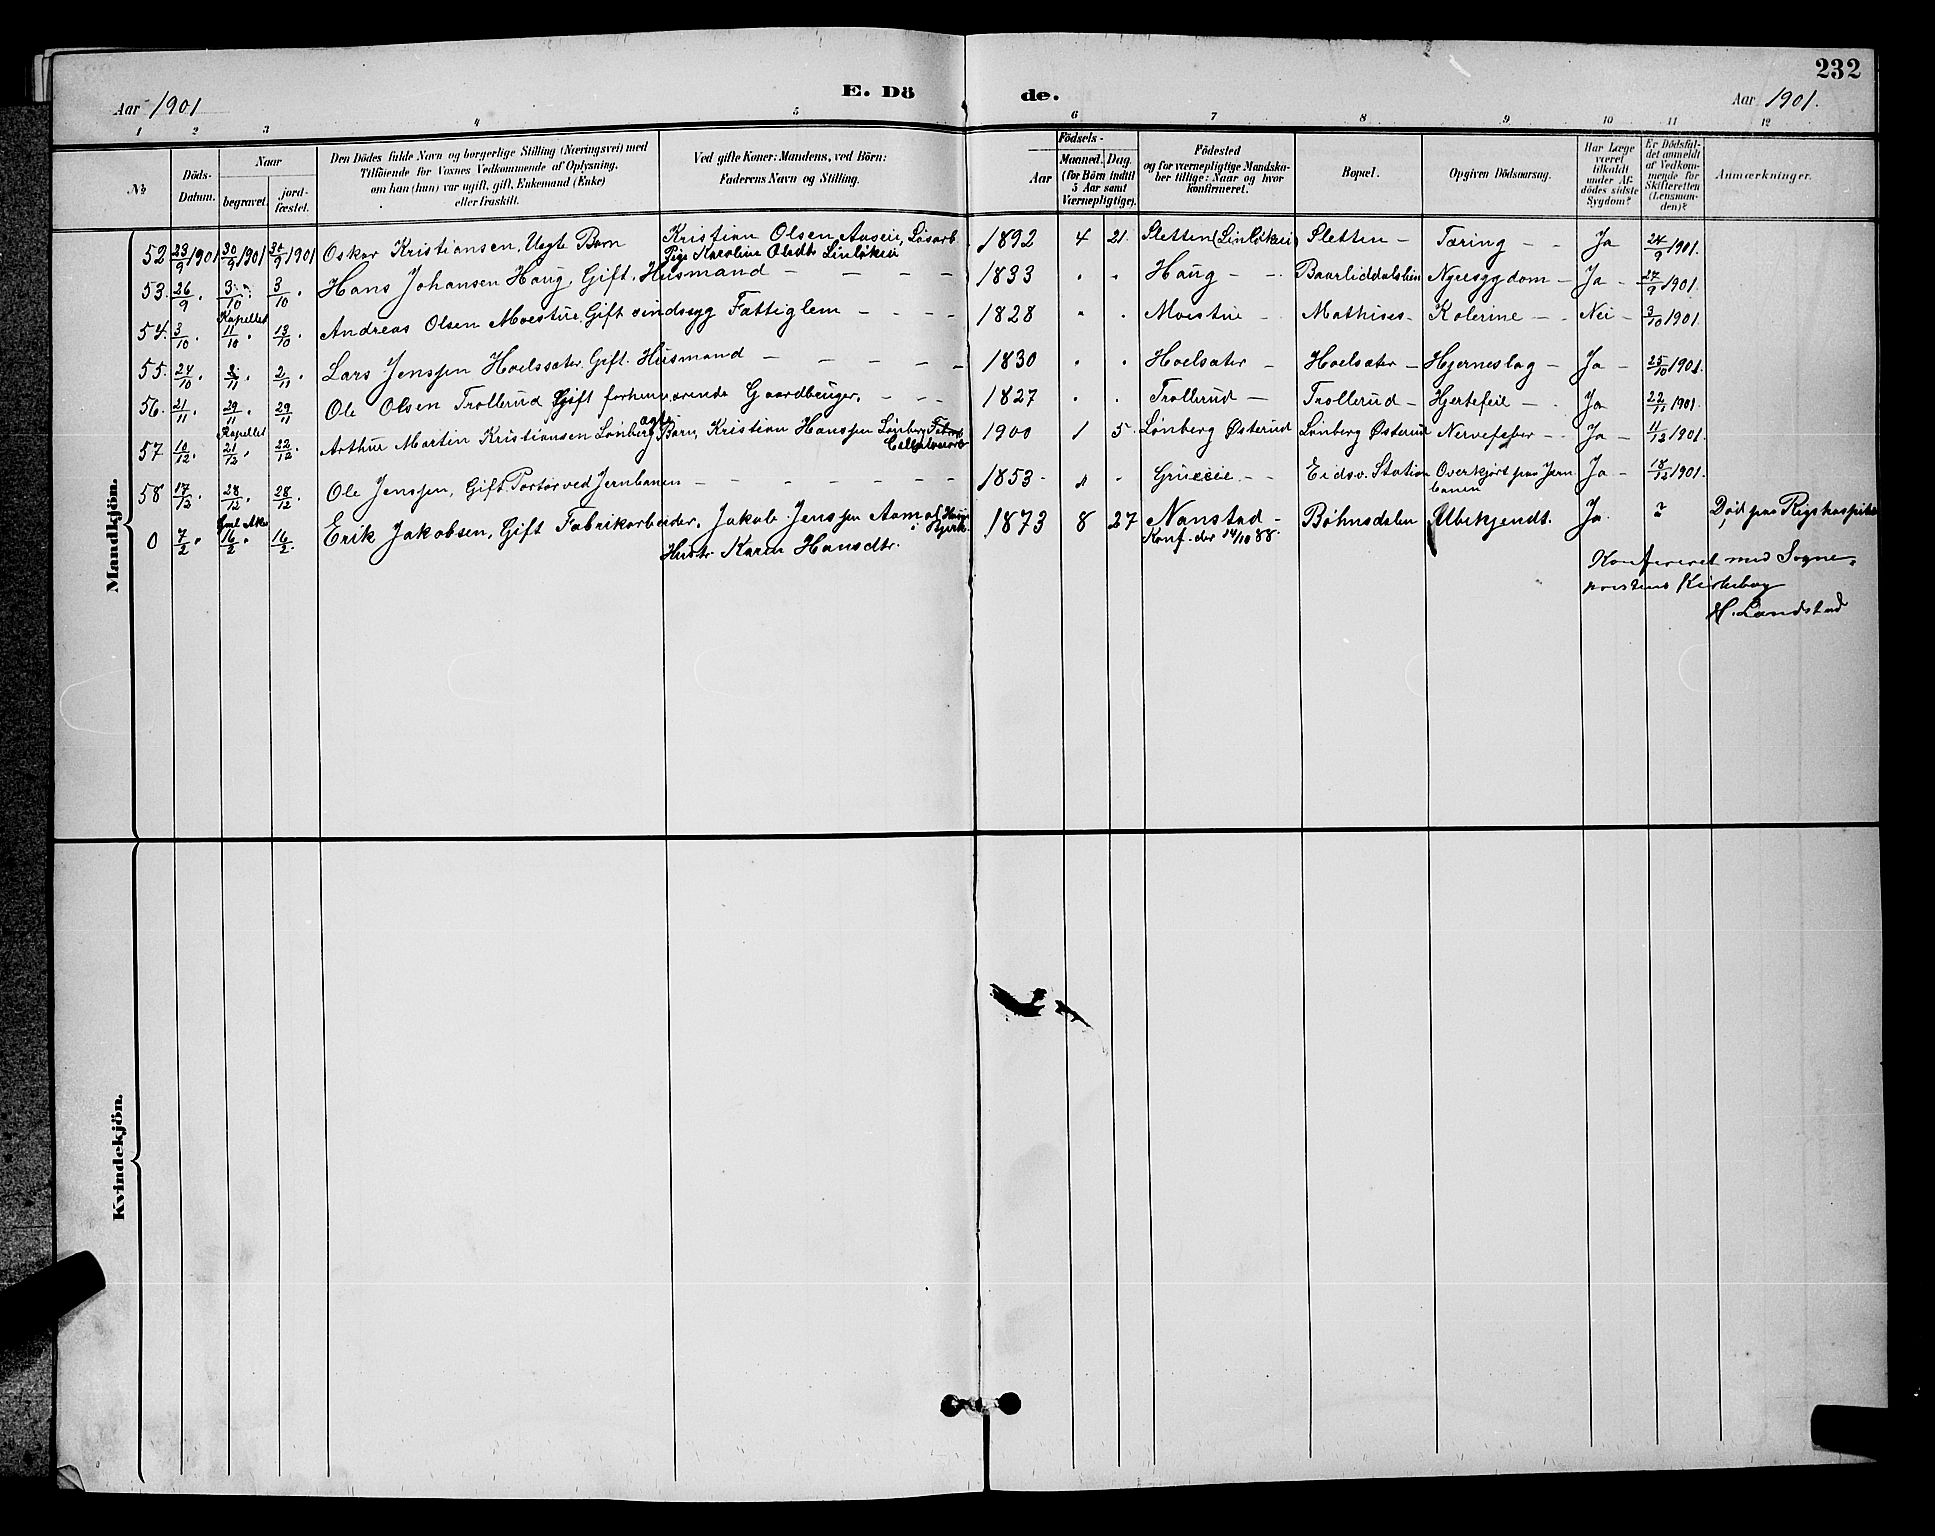 232
Aar 1901 E. Dö de. Aar 1901.
1 2 3 4 5 6 7 8 9 10 11 12
No
Döds-Datum.
Naar
begravet. jordfæstet.
Den Dödes fulde Navn og borgerlige Stilling (Næringsvei) med
Tilföiende for Voxnes Vedkommende af Oplysning,
om han (hun) var ugift, gift, Enkemand (Enke)
eller fraskilt.
Ved gifte Koner: Mandens, ved Börn:
Faderens Navn og Stilling.
Födsels-
Aar Maaned. Dag.
(for Börn indtil
5 Aar samt
Værnepligtige).
Födested
og for værnepligtige Mandskaber
tillige: Naar og hvor
konfirmeret.
Bopæl.
Opgiven Dödsaarsag.
Har Læge
været
tilkaldt
under Afdödes
sidste
Sygdom?
Er Dödsfaldet
anmeldt
af Vedkommende
for
Skifteretten
(Lensmanden)?
Anmærkninger.
Mandkjön.
52 23/9 1901 30/9 1901 30/9 1901 Oskar Kristiansen, Uegte Barn Kristian Olsen Aaseie, Løsarb 1892 4 21. Sletten (Linløkeie) Sletten – Tæring – – Ja 24/9 1901.
Pige Karoline Olsdtr Linløkeie
53. 26/9 " 3/10 " 3/10 " Hans Johansen Haug, Gift, Husmand – – – – 1833 " " Haug – – Baarliddalshein Nyresygdom – Ja – 27/9 1901.
Kapellet
54. 3/10 " 11/10 " 13/10 " Andreas Olsen Moestue, Gift sindssyg Fattiglem – – – – 1828 " " Moestue – Mathises – Kolerine – – Nei – 3/10 1901.
55. 24/10 " 2/11 " 2/11 " Lars Jenssen Hoelssæter, Gift. Husmand – – – – – 1830 " " Hoelsæter – Hoelsæter – Hjerneslag – Ja – 25/10 1901.
56. 21/11 " 29/11 " 29/11 " Ole Olsen Trollerud Gift forhenværende Gaardbruger, – – – 1827 " " Trollerud – Trollerud – Hjertefeil – – Ja 22/11 1901.
Kapellet
57 10/12 " 21/12 " 22/12 " Arthur Martin Kristiansen Lønberg, ægte Barn, Kristian Hanssen Lønberg, Fabrarb 1900 1 5. Lønberg Østerud Lønberg Østerud Nervefeber – – Ja – 11/12 1901.
58 17/12 " 28/12 " 28/12 " Ole Jenssen, Gift. Portør ved Jernbanen – – – – – – – 1853 – " " Grueeie – – Eidsv. Station Overkjørt paa Jern Ja – 18/12 1901.
banen
0 7/2 " 16/2 " 16/2 " Erik Jakobsen, Gift Fabrikarbeider, Jakob Jenssen Aamot, 1873 8 27 Nanstad – Bøhnsdalen Ubekjendt. Ja. ? Død paa Rigshospital
Hustr Karen Hansdtr. Konf. der 14/10 88.
Konfereret med Sogne-
prestens Kirkebog
H. Landstad
Kvindekjön.